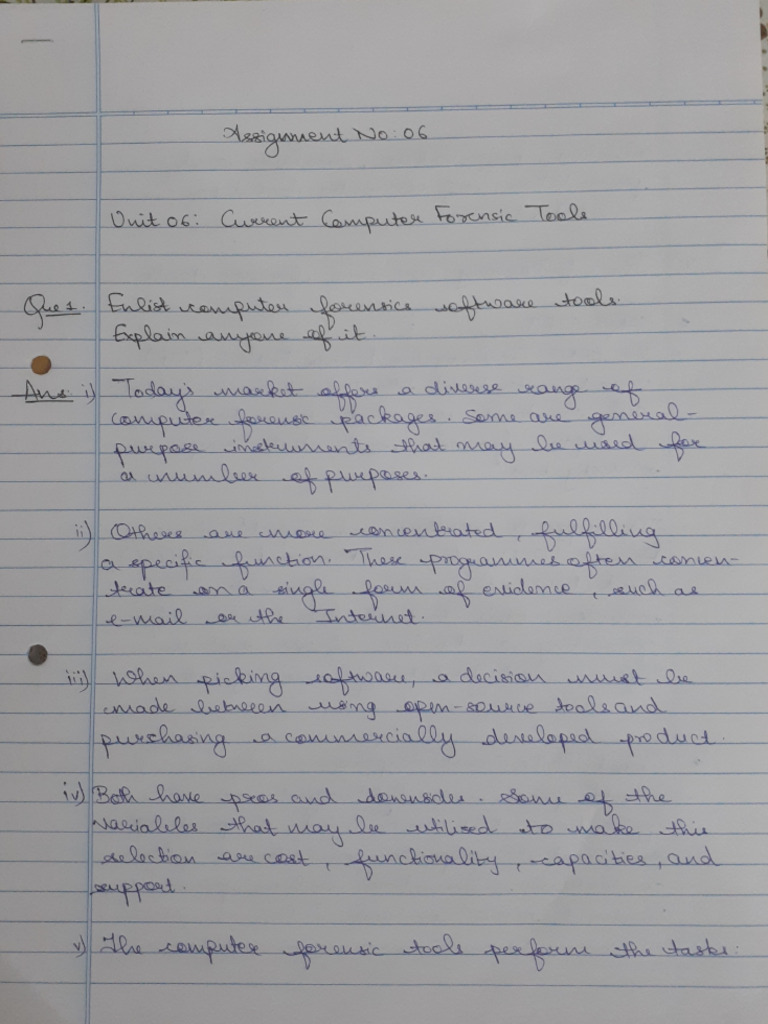 Assignment No: 06
Unit 06: Current Computer Forensic Tools
Que 1. Enlist computer forensics software tools.
Explain anyone of it.
Ans: i) Today's market offers a diverse range of
computer forensic packages. Some are general-
purpose instruments that may be used for
a number of purposes.
ii) Others are more concentrated, fulfilling
a specific function. These programmes often concen-
trate on a single form of evidence, such as
e-mail or the Internet.
iii) When picking software, a decision must be
made between using open-source tools and
purchasing a commercially developed product.
iv) Both have pros and downsides. Some of the
variables that may be utilised to make this
selection are cost, functionality, capacities, and
support.
v) The computer forensic tools perform the tasks: